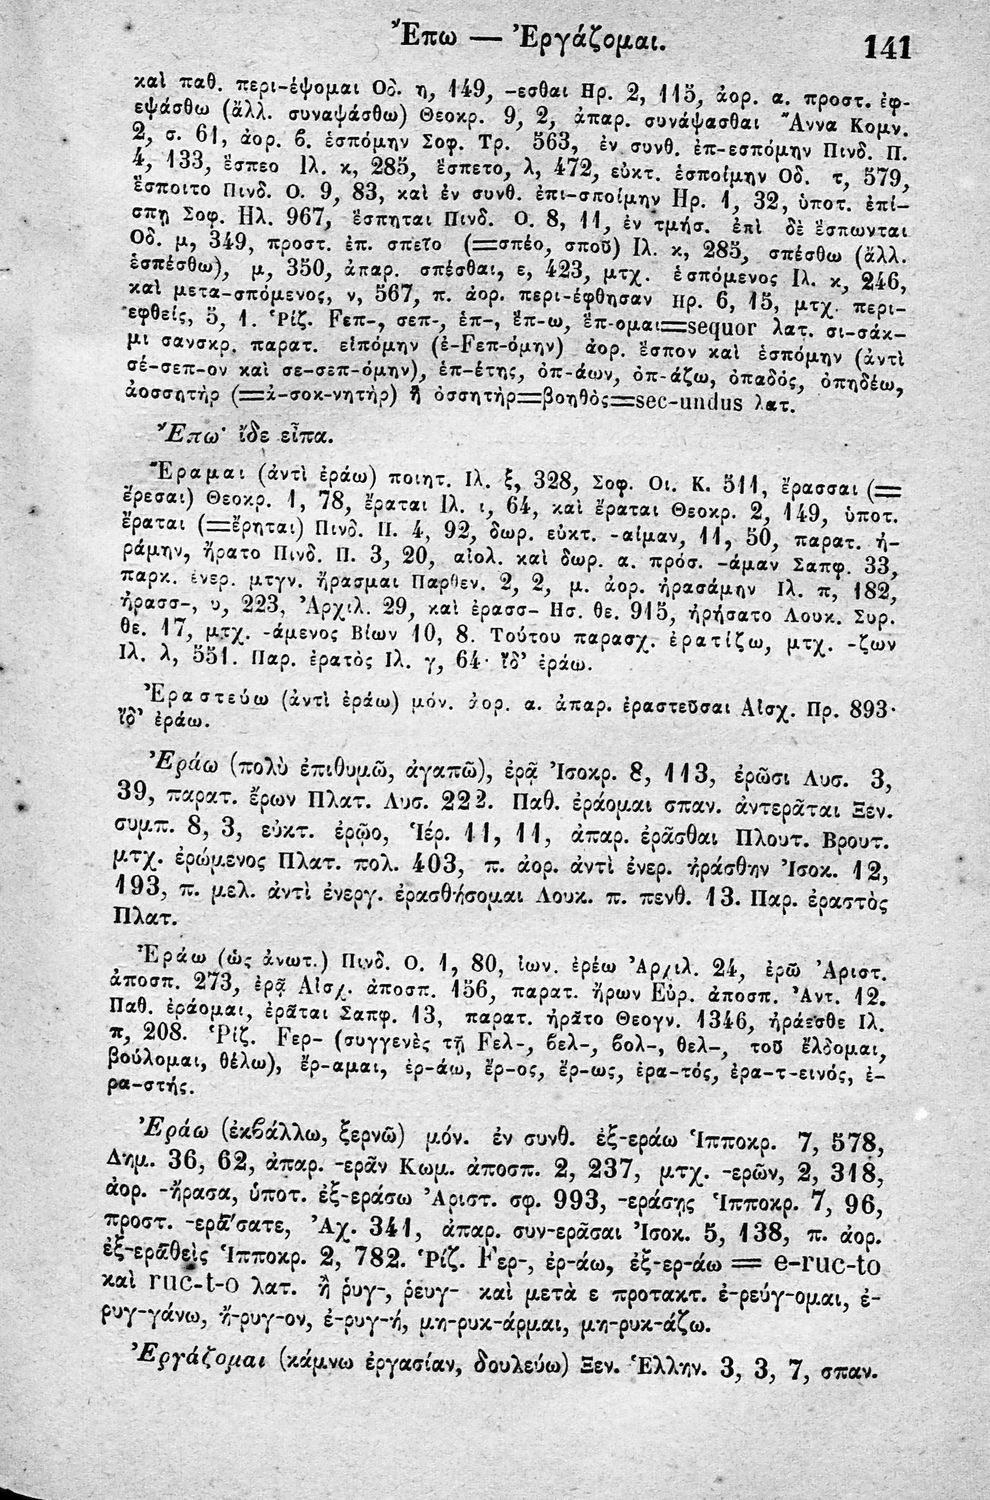 Ἕπω — Ἐργάζομαι.
141
καὶ παθ. περι-έψομαι Οδ. η, 149, -εσθαι Ηρ. 2, 115, ἀορ. α. προστ. ἐφ-
εψάσθω (ἄλλ. συναψάσθω) Θεοκρ. 9, 2, ἀπαρ. συνάψασθαι Ἄννα Κομν.
2, σ. 61, ἀορ. β. ἑσπόμην Σοφ. Τρ. 563, ἐν συνθ. ἐπ-εσπόμην Πινδ. Π.
4, 133, ἕσπεο Ιλ. κ, 285, ἕσπετο, λ, 472, εὐκτ. ἑσποίμην Οδ. τ, 579,
ἕσποιτο Πινδ. Ο. 9, 83, καὶ ἐν συνθ. ἐπι-σποίμην Ηρ. 1, 32, ὑποτ. ἐπί-
σπῃ Σοφ. Ηλ. 967, ἕσπηται Πινδ. Ο. 8, 11, ἐν τμήσ. ἐπὶ δὲ ἕσπωνται
Οδ. μ, 349, προστ. ἐπ. σπεῖο (=σπέο, σποῦ) Ιλ. κ, 285, σπέσθω (ἄλλ.
ἑσπέσθω), μ, 350, ἀπαρ. σπέσθαι, ε, 423, μτχ. ἑσπόμενος Ιλ. κ, 246,
καὶ μετα-σπόμενος, ν, 567, π. ἀορ. περι-έφθησαν Ηρ. 6, 15, μτχ. περι-
εφθείς, 5, 1. Ῥίζ. Fεπ-, σεπ-, ἑπ-, ἕπ-ω, ἕπ-ομαι=sequor λατ. σι-σάκ-
μι σανσκρ. παρατ. εἱπόμην (ἐ-Fεπ-όμην) ἀορ. ἕσπον καὶ ἑσπόμην (ἀντὶ
σέ-σεπ-ον καὶ σε-σεπ-όμην), ἑπ-έτης, ὀπ-άων, ὀπ-άζω, ὀπαδός, ὀπηδέω,
ἀοσσητὴρ (=ἀ-σοκ-νητὴρ) ἢ ὀσσητὴρ=βοηθὸς=sec-undus λατ.
Ἔπω· ἴδε εἶπα.
Ἔραμαι (ἀντὶ ἐράω) ποιητ. Ιλ. ξ, 328, Σοφ. Οι. Κ. 511, ἔρασσαι (=
ἔρεσαι) Θεοκρ. 1, 78, ἔραται Ιλ. ι, 64, καὶ ἔραται Θεοκρ. 2, 149, ὑποτ.
ἔραται (=ἔρηται) Πινδ. Π. 4, 92, δωρ. εὐκτ. -αίμαν, 11, 50, παρατ. ἠ-
ράμην, ἤρατο Πινδ. Π. 3, 20, αἰολ. καὶ δωρ. α. πρόσ. -άμαν Σαπφ. 33,
παρκ. ἐνερ. μτγν. ἤρασμαι Παρθεν. 2, 2, μ. ἀορ. ἠρασάμην Ιλ. π, 182,
ἠρασσ-, υ, 223, Ἀρχιλ. 29, καὶ ἐρασσ- Ησ. θε. 915, ἠρήσατο Λουκ. Συρ.
θε. 17, μτχ. -άμενος Βίων 10, 8. Τούτου παρασχ. ἐρατίζω, μτχ. -ζων
Ιλ. λ, 551. Παρ. ἐρατὸς Ιλ. γ, 64· ἴδ' ἐράω.
Ἐραστεύω (ἀντὶ ἐράω) μόν. ἀορ. α. ἀπαρ. ἐραστεῦσαι Αἰσχ. Πρ. 893·
ἴδ' ἐράω.
Ἐράω (πολὺ ἐπιθυμῶ, ἀγαπῶ), ἐρᾷ Ἰσοκρ. 8, 113, ἐρῶσι Λυσ. 3,
39, παρατ. ἔρων Πλατ. Λυσ. 222. Παθ. ἐράομαι σπαν. ἀντερᾶται Ξεν.
συμπ. 8, 3, εὐκτ. ἐρῷο, Ἱέρ. 11, 11, ἀπαρ. ἐρᾶσθαι Πλουτ. Βρουτ.
μτχ. ἐρώμενος Πλατ. πολ. 403, π. ἀορ. ἀντὶ ἐνερ. ἠράσθην Ἰσοκ. 12,
193, π. μελ. ἀντὶ ἐνεργ. ἐρασθήσομαι Λουκ. π. πενθ. 13. Παρ. ἐραστὸς
Πλατ.
Ἐράω (ὡς ἀνωτ.) Πινδ. Ο. 1, 80, ἰων. ἐρέω Ἀρχιλ. 24, ἐρῶ Ἀριστ.
ἀποσπ. 273, ἐρᾷ Αἰσχ. ἀποσπ. 156, παρατ. ἤρων Εὐρ. ἀποσπ. Ἀντ. 12.
Παθ. ἐράομαι, ἐρᾶται Σαπφ. 13, παρατ. ἠρᾶτο Θεογν. 1346, ἠράεσθε Ιλ.
π, 208. Ῥίζ. Fερ- (συγγενὲς τῇ Fελ-, βελ-, βολ-, θελ-, τοῦ ἔλδομαι,
βούλομαι, θέλω), ἔρ-αμαι, ἐρ-άω, ἔρ-ος, ἔρ-ως, ἐρα-τός, ἐρα-τ-εινός, ἐ-
ρα-στής.
Ἐράω (ἐκβάλλω, ξερνῶ) μόν. ἐν συνθ. ἐξ-εράω Ἱπποκρ. 7, 578,
Δημ. 36, 62, ἀπαρ. -ερᾶν Κωμ. ἀποσπ. 2, 237, μτχ. -ερῶν, 2, 318,
ἀορ. -ἤρασα, ὑποτ. ἐξ-εράσω Ἀριστ. σφ. 993, -εράσῃς Ἱπποκρ. 7, 96,
προστ. -ερᾱ́σατε, Ἀχ. 341, ἀπαρ. συν-ερᾶσαι Ἰσοκ. 5, 138, π. ἀορ.
ἐξ-ερᾱθεὶς Ἱπποκρ. 2, 782. Ῥίζ. Fερ-, ἐρ-άω, ἐξ-ερ-άω = e-ruc-to
καὶ ruc-t-o λατ. ἢ ῥυγ-, ῥευγ- καὶ μετὰ ε προτακτ. ἐ-ρεύγ-ομαι, ἐ-
ρυγ-γάνω, ἤ-ρυγ-ον, ἐ-ρυγ-ή, μη-ρυκ-άρμαι, μη-ρυκ-άζω.
Ἐργάζομαι (κάμνω ἐργασίαν, δουλεύω) Ξεν. Ἑλλην. 3, 3, 7, σπαν.